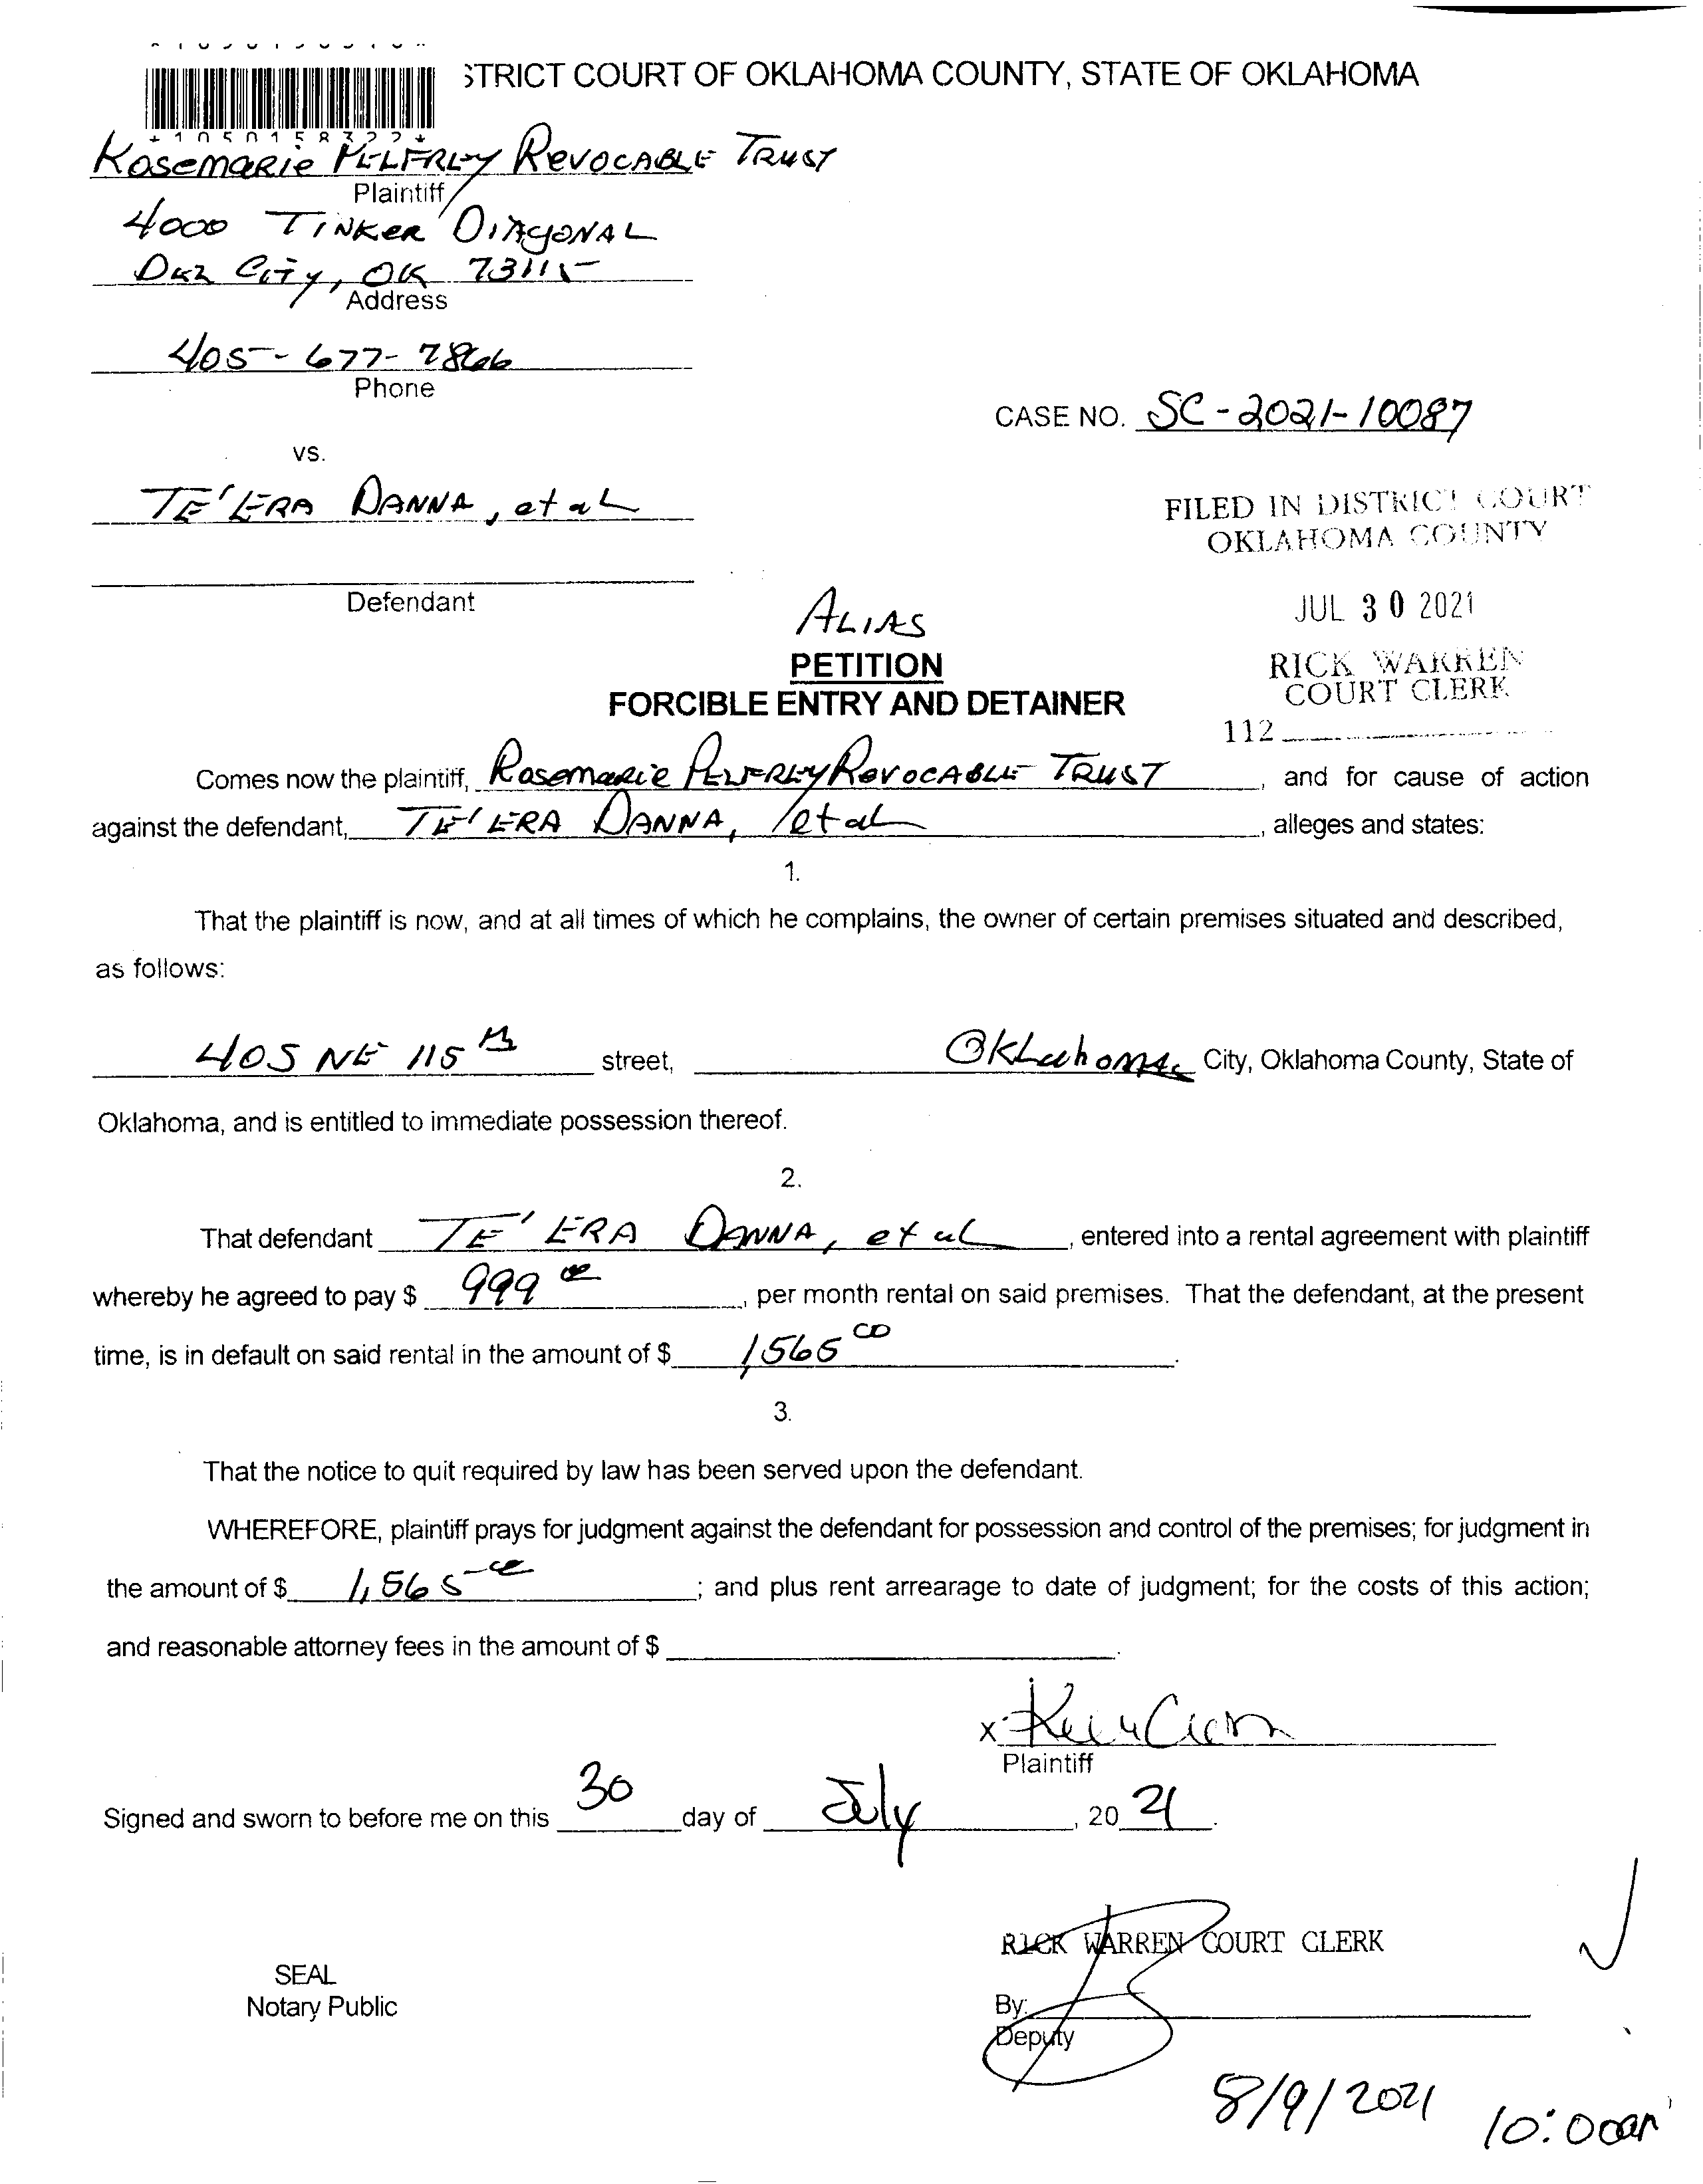 *1050158322*
STRICT COURT OF OKLAHOMA COUNTY, STATE OF OKLAHOMA
Rosemarie PELFREY REVOCABLE TRUST
Plaintiff
4000 TINKER DIAGONAL
DEL CITY, OK 73115
Address
405-677-7866
Phone
CASE NO. SC-2021-10087
vs.
TE'ERA DANNA, et al
FILED IN DISTRICT COURT
OKLAHOMA COUNTY
Defendant
JUL 30 2021
ALIAS
PETITION
RICK WARREN
COURT CLERK
FORCIBLE ENTRY AND DETAINER
112
Comes now the plaintiff, Rosemarie PELFREY REVOCABLE TRUST, and for cause of action
against the defendant, TE'ERA DANNA, et al, alleges and states:
1.
That the plaintiff is now, and at all times of which he complains, the owner of certain premises situated and described,
as follows:
405 NE 115th street, Oklahoma City, Oklahoma County, State of
Oklahoma, and is entitled to immediate possession thereof.
2.
That defendant TE'ERA DANNA, et al, entered into a rental agreement with plaintiff
whereby he agreed to pay $ 999 00, per month rental on said premises. That the defendant, at the present
time, is in default on said rental in the amount of $ 1,565 00.
3.
That the notice to quit required by law has been served upon the defendant.
WHEREFORE, plaintiff prays for judgment against the defendant for possession and control of the premises; for judgment in
the amount of $ 1,565 00; and plus rent arrearage to date of judgment; for the costs of this action;
and reasonable attorney fees in the amount of $ .
X
Plaintiff
Signed and sworn to before me on this 30 day of July, 20 21.
RICK WARREN COURT CLERK
SEAL
Notary Public
By:
Deputy
8/9/2021 10:00am